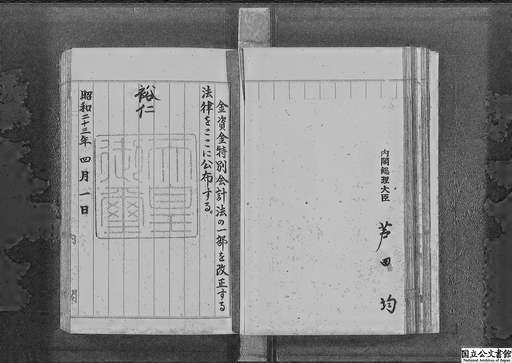 金資金特別会計法の一部を改正する
法律をここに公布する。
裕仁
天皇御璽
昭和二十三年四月一日
内閣
内閣総理大臣 芦田均
国立公文書館
National Archives of Japan